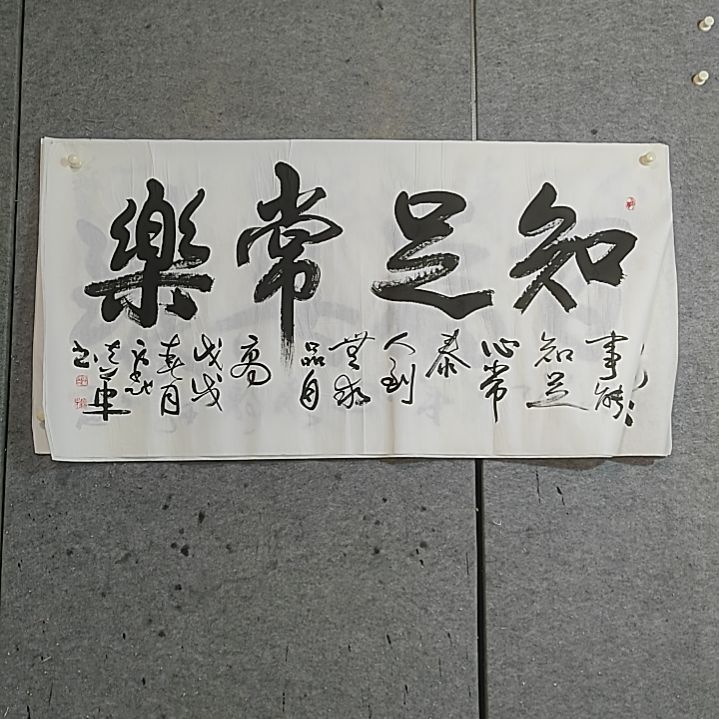 知足常樂
事能
知足
心常
泰
人到
無求
品自
高
戊戌
春月